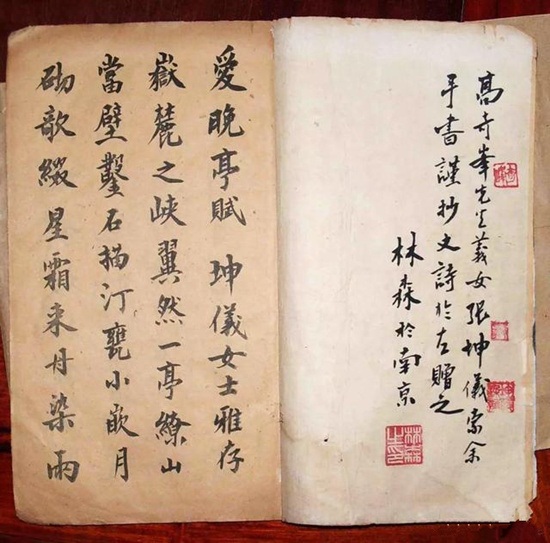 高奇峯先生義女張坤儀索余
手書謹抄文詩於左贈之
林森於南京
愛晚亭賦 坤儀女士雅存
嶽麓之峽翼然一亭繚山
當壁鑿石描汀甃小嵌月
砌欹綴星霜来丹染雨